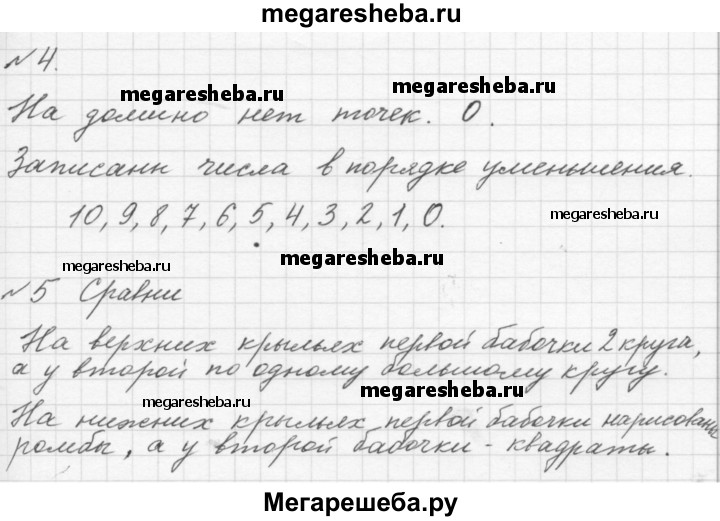 megaresheba.ru
№4.
megaresheba.ru
megaresheba.ru
На домино нет точек. 0.
Записани числа в порядке уменьшения.
10, 9, 8, 7, 6, 5, 4, 3, 2, 1, 0.
megaresheba.ru
megaresheba.ru
megaresheba.ru
№5 Сравни
На верхних крыльях первой бабочки 2 круга,
а у второй по одному большому кругу.
megaresheba.ru
На нижних крыльях первой бабочки нарисованы
ромбы, а у второй бабочки - квадраты.
Мегарешеба.ру